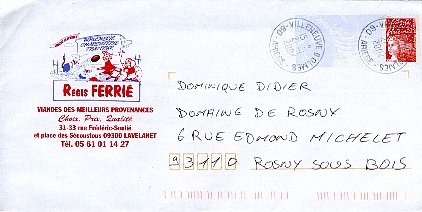 BOUCHERIE
CHARCUTERIE
TRAITEUR
REGIS FERRIÉ
VIANDES DES MEILLEURS PROVENANCES
Choix, Prix, Qualité
31-33 rue Frédéric-Soulié
et place des Sécoustous 09300 LAVELANET
Tél. 05 61 01 14 27
09-VILLENEUVE D'OLMES
DOMINIQUE DIDIER
DOMAINE DE ROSNY
6 RUE EDMOND MICHELET
93110 ROSNY SOUS BOIS